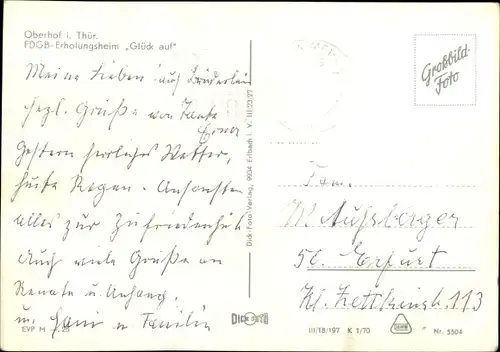 Oberhof i. Thür.
FDGB-Erholungsheim „Glück auf"
Meine Lieben auf
herzl. Grüße von Tante
Erna
Gestern herrliches Wetter,
heute Regen. Ansonsten
alles zur Zufriedenheit
Auch viele Grüße an
Renate u. Anhang.
u. Hani u Familie
EVP M
Dick-Foto-Verlag, 9934 Erlbach i. V. III/23/37
Großbild-
Foto
Fam.
50. Erfurt
Kl. Zetkinstr. 113
DICK FOTO
III/18/197 K 1/70
Nr. 5504